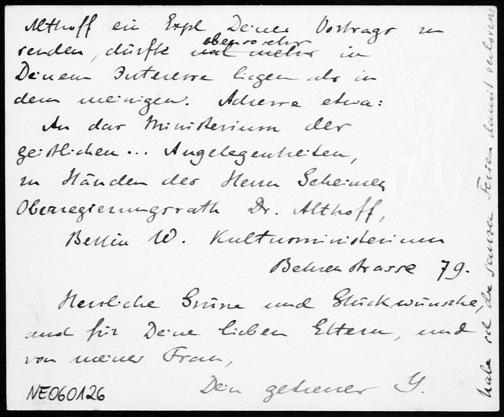 Althoff ein Expl Deines Vortrags zu
senden, dürfte ebensosehr in
Deinem Interesse liegen als in
dem meinigen. Adresse etwa:
An das Ministerium der
geistlichen... Angelegenheiten,
zu Händen des Herrn Geheimen
Oberregierungsrath Dr. Althoff,
Berlin W. Kultusministerium
Behrenstrasse 79.
Herzliche Grüsse und Glückwünsche,
auch für Deine lieben Eltern, und
von meiner Frau,
Dein getreuer
NE060126
habe ich die ganzen Ferien damit verloren